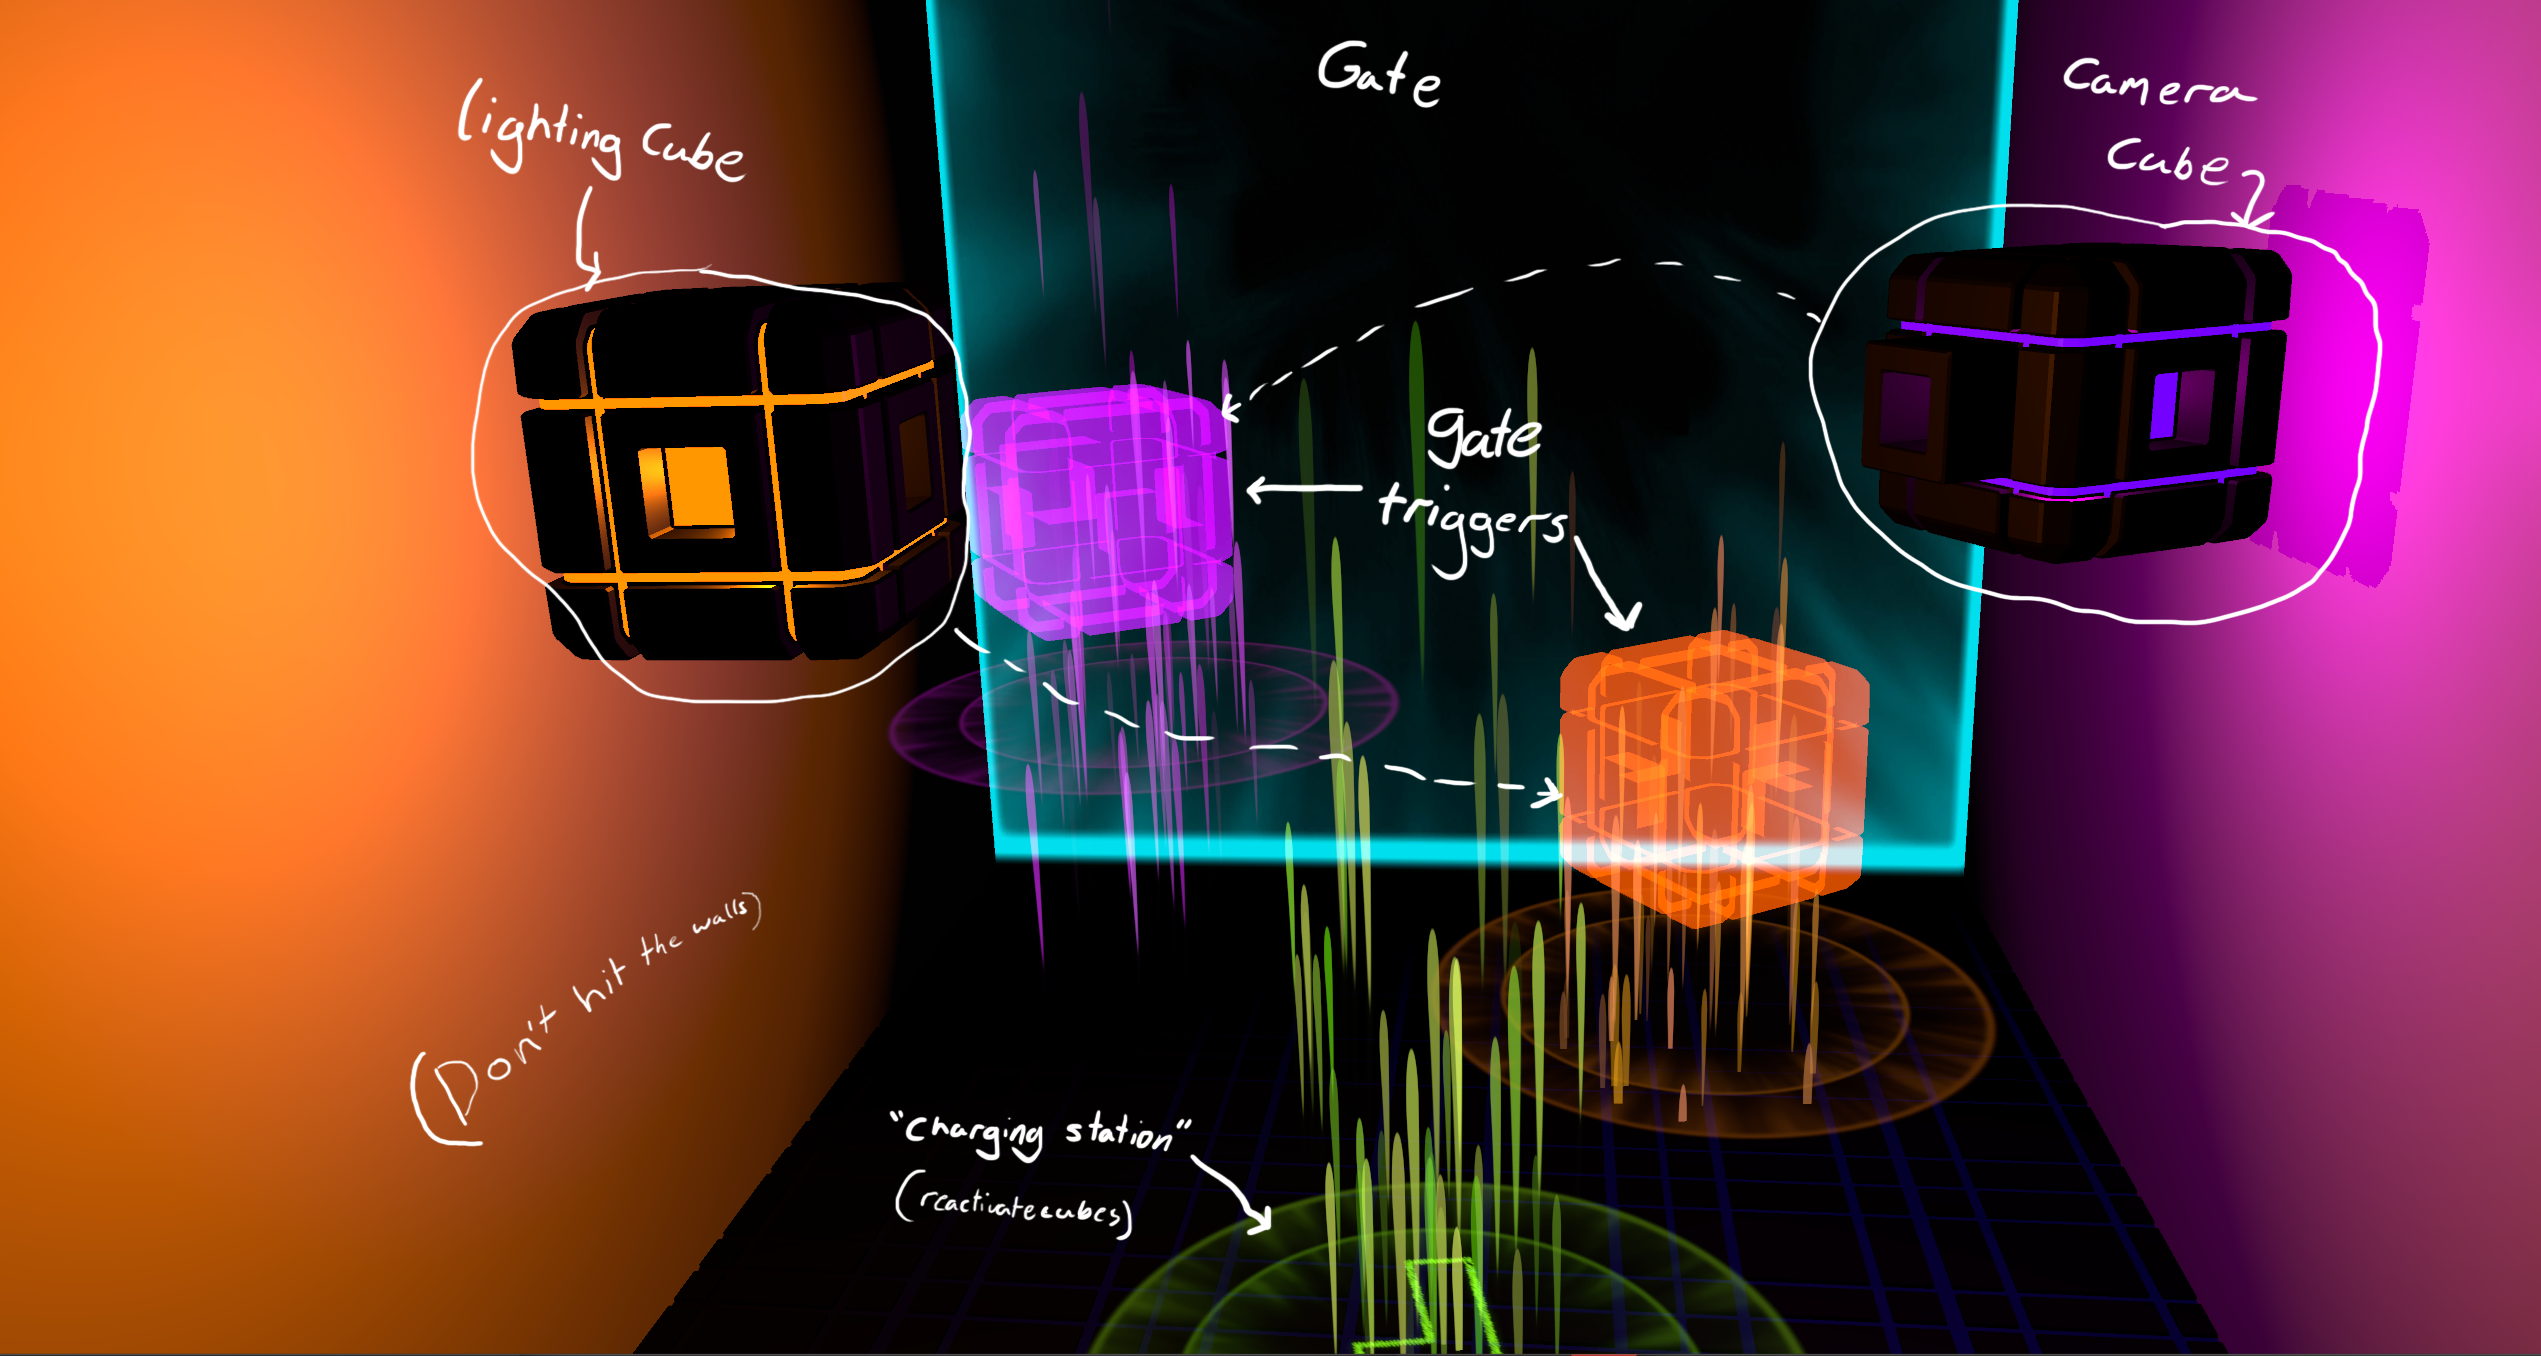 Gate
Camera
Cube
lighting Cube
gate
triggers
(Don't hit the walls)
"charging station"
(reactivate cubes)